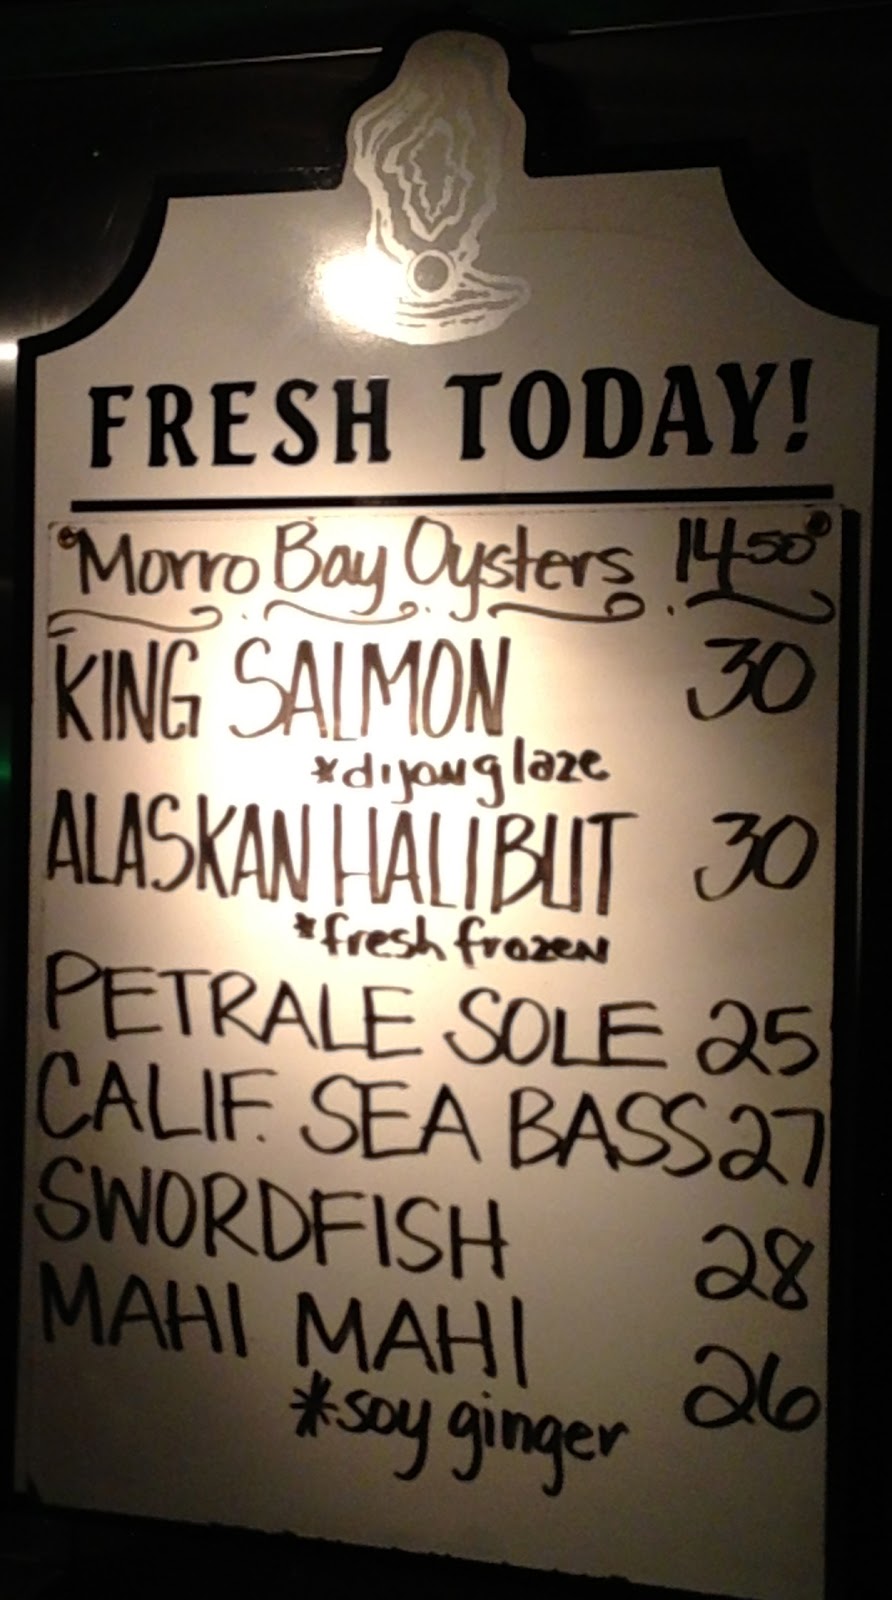 FRESH TODAY!
Morro Bay Oysters 14.50
KING SALMON 30
*dijon glaze
ALASKAN HALIBUT 30
*fresh frozen
PETRALE SOLE 25
CALIF. SEA BASS 27
SWORDFISH 28
MAHI MAHI 26
*soy ginger